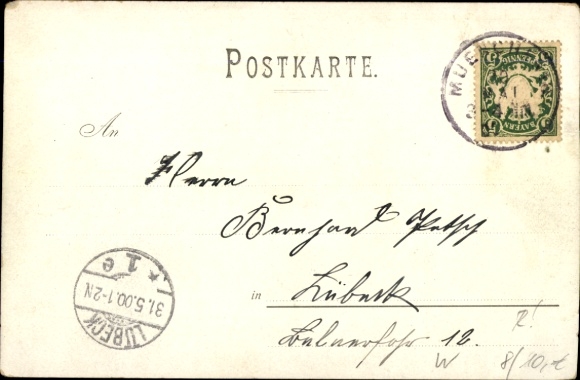 POSTKARTE.
MUE
5 PFENNIG 5
BAYERN
An
Herrn
Bernhard Petsch
in Lübeck
12.
R!
W 8/10,-€
* 1 e
31.5.00.1-2N
LÜBECK